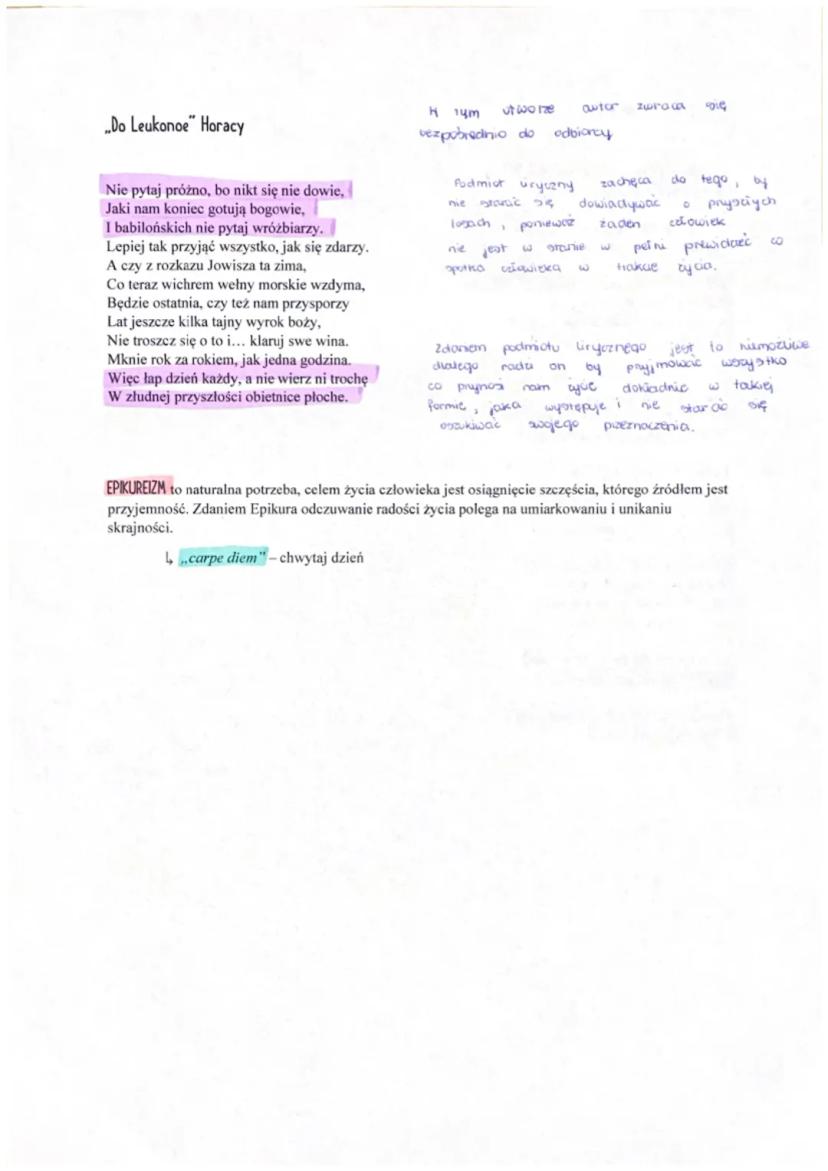 „Do Leukonoe” Horacy
W tym utworze autor zwraca się
bezpośrednio do odbiorcy
Nie pytaj próżno, bo nikt się nie dowie,
Jaki nam koniec gotują bogowie,
I babilońskich nie pytaj wróżbiarzy.
Lepiej tak przyjąć wszystko, jak się zdarzy.
A czy z rozkazu Jowisza ta zima,
Co teraz wichrem wełny morskie wzdyma,
Będzie ostatnia, czy też nam przysporzy
Lat jeszcze kilka tajny wyrok boży,
Nie troszcz się o to i... klaruj swe wina.
Mknie rok za rokiem, jak jedna godzina.
Więc łap dzień każdy, a nie wierz ni trochę
W złudnej przyszłości obietnice płoche.
Podmiot liryczny zachęca do tego, by
nie starać się dowiadywać o przyszłych
losach, ponieważ żaden człowiek
nie jest w stanie w pełni przewidzieć co
spotka człowieka w trakcie życia.
Zdaniem podmiotu lirycznego jest to niemożliwe
dlatego radzi on by przyjmować wszystko
co przynosi nam życie dokładnie w takiej
formie, jaka występuje i nie starać się
oszukiwać swojego przeznaczenia.
EPIKUREIZM to naturalna potrzeba, celem życia człowieka jest osiągnięcie szczęścia, którego źródłem jest
przyjemność. Zdaniem Epikura odczuwanie radości życia polega na umiarkowaniu i unikaniu
skrajności.
↳ „carpe diem” – chwytaj dzień